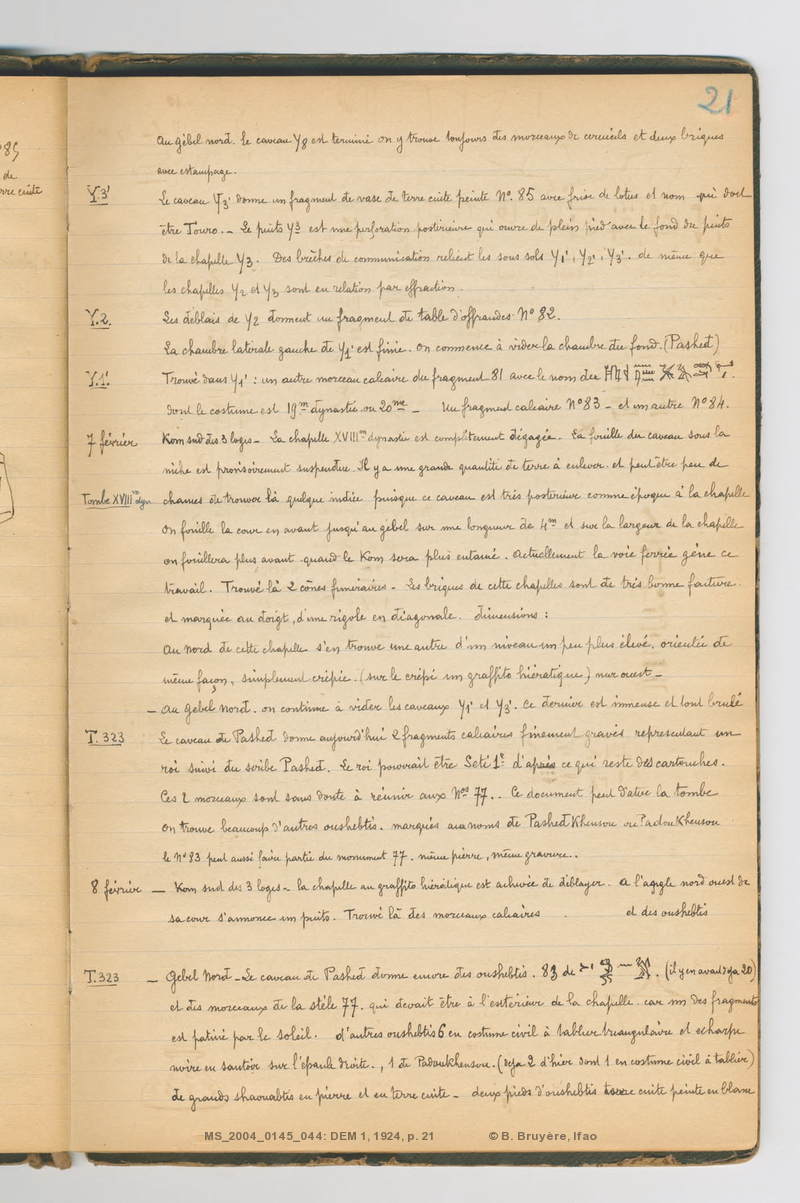 21
Au gébel nord. Le caveau Y8 est terminé on y trouve toujours des morceaux de cercueils et deux briques
avec estampage.
Y.3' Le caveau Y3' donne un fragment de vase de terre cuite peinte No. 85 avec frise de lotus et nom qui doit
être Touro. _ Le puits Y3 est une perforation postérieure qui ouvre de plein pied avec le fond du puits
de la chapelle Y3. Des brèches de communication relient les sous sols Y1', Y2', Y3'. de même que
les chapelles Y2 et Y3 sont en relation par effraction.
Y.2. Les déblais de Y2 donnent un fragment de table d'offrandes No 82.
La chambre latérale gauche de Y1' est finie. On commence à vider la chambre du fond. (Pashed)
Y.1'. Trouvé dans Y1' : un autre morceau calcaire du fragment 81 avec le nom de
dont le costume est 19me dynastie ou 20me _ Un fragment calcaire No 83 _ et un autre No 84.
7 février Kom sud des 3 loges _ La chapelle XVIIIme dynastie est complètement dégagée. La fouille du caveau sous la
niche est provisoirement suspendue. Il y a une grande quantité de terre à enlever et peut être peu de
Tombe XVIIIme dyn chances de trouver là quelque indice puisque ce caveau est très postérieur comme époque à la chapelle
On fouille la cour en avant jusqu'au gébel sur une longueur de 4m et sur la largeur de la chapelle
on fouillera plus avant quand le Kom sera plus entamé. Actuellement la voie ferrée gêne ce
travail. Trouvé là 2 cônes funéraires _ Les briques de cette chapelles sont de très bonne facture.
et marquée au doigt, d'une rigole en diagonale. dimensions :
Au Nord de cette chapelle s'en trouve une autre d'un niveau un peu plus élevé, orientée de
même façon, simplement crépie. (sur le crépi un graffito hiératique) mur ouest _
_ Au Gebel Nord. on continue à vider les caveaux Y1' et Y3'. Ce dernier est immense et tout brulé
T. 323 Le caveau de Pashed donne aujourd'hui 2 fragments calcaires finement gravés représentant un
roi suivi du scribe Pashed. Le roi pourrait être Seti 1er d'après ce qui reste des cartouches.
Ces 2 morceaux sont sans doute à réunir aux Nos 77. _ Ce document peut dater la tombe
On trouve beaucoup d'autres oushebtis. marqués aux noms de Pashed Khensou ou Padou Khensou
le No 83 peut aussi faire partie du monument 77. même pierre, même gravure..
8 février _ Kom sud des 3 loges _ la chapelle au graffito hiératique est achevée de déblayer. A l'angle nord ouest de
sa cour s'annonce un puits. Trouvé là des morceaux calcaires . et des oushebtis
T. 323 _ Gebel Nord _ Le caveau de Pashed donne encore des oushebtis. 83 de . (il y en avait deja 20)
et des morceaux de la stèle 77. qui devait être à l'extérieur de la chapelle. car un des fragments
est patiné par le soleil. d'autres oushebtis 6 en costume civil à tablier triangulaire et echarpe
noire en sautoir sur l'épaule droite., 1 de Padoukhensou. (deja 2 d'hier dont 1 en costume civil à tablier)
de grands shaouabtis en pierre et en terre cuite _ deux pieds d'oushebtis terre cuite peinte en blanc
MS_2004_0145_044: DEM 1, 1924, p. 21 © B. Bruyère, Ifao